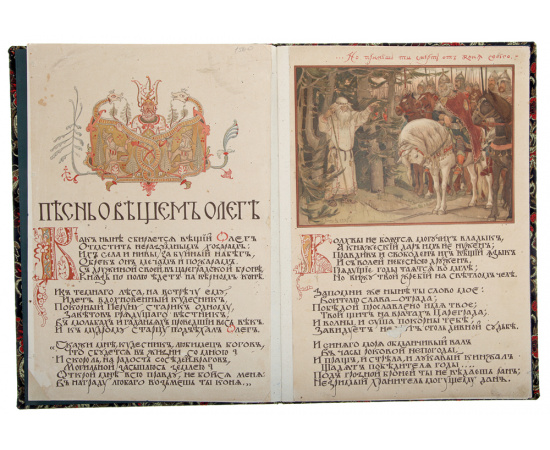 ПѢСНЬ О ВѢЩЕМЪ ОЛЕГѢ
Какъ нынѣ сбирается вѣщій Олегъ
Отмстить неразумнымъ хозарамъ:
Ихъ села и нивы, за буйный набѣгъ,
Обрекъ онъ мечамъ и пожарамъ.
Съ дружиной своей, въ цареградской бронѣ,
Князь по полю ѣдетъ на вѣрномъ конѣ.
Изъ темнаго лѣса, на встрѣчу ему,
Идетъ вдохновенный кудесникъ,
Покорный Перуну старикъ одному,
Завѣтовъ грядущаго вѣстникъ,
Въ мольбахъ и гаданьяхъ проведшій весь вѣкъ.
И къ мудрому старцу подъѣхалъ Олегъ.
"Скажи мнѣ, кудесникъ, любимецъ боговъ,
Что сбудется въ жизни со мною?
И скоро ль, на радость сосѣдей-враговъ,
Могильной засыплюсь землею?
Открой мнѣ всю правду, не бойся меня:
Въ награду любого возьмешь ты коня..."
...Но примешь ты смерть отъ коня своего.
Волхвы не боятся могучихъ владыкъ,
А княжескій даръ имъ не нуженъ;
Правдивъ и свободенъ ихъ вѣщій языкъ
И съ волей небесною друженъ.
Грядущіе годы таятся во мглѣ;
Но вижу твой жребій на свѣтломъ челѣ.
Запомни же нынѣ ты слово мое:
Воителю слава—отрада;
Побѣдой прославлено имя твое;
Твой щитъ на вратахъ Цареграда;
И волны, и суша покорны тебѣ;
Завидуетъ недругъ столь дивной судьбѣ.
И синяго моря обманчивый валъ
Въ часы роковой непогоды,
И пращъ, и стрѣла, и лукавый кинжалъ
Щадятъ побѣдителя годы....
Подъ грозной броней ты не вѣдаешь ранъ;
Незримый хранитель могущему данъ.